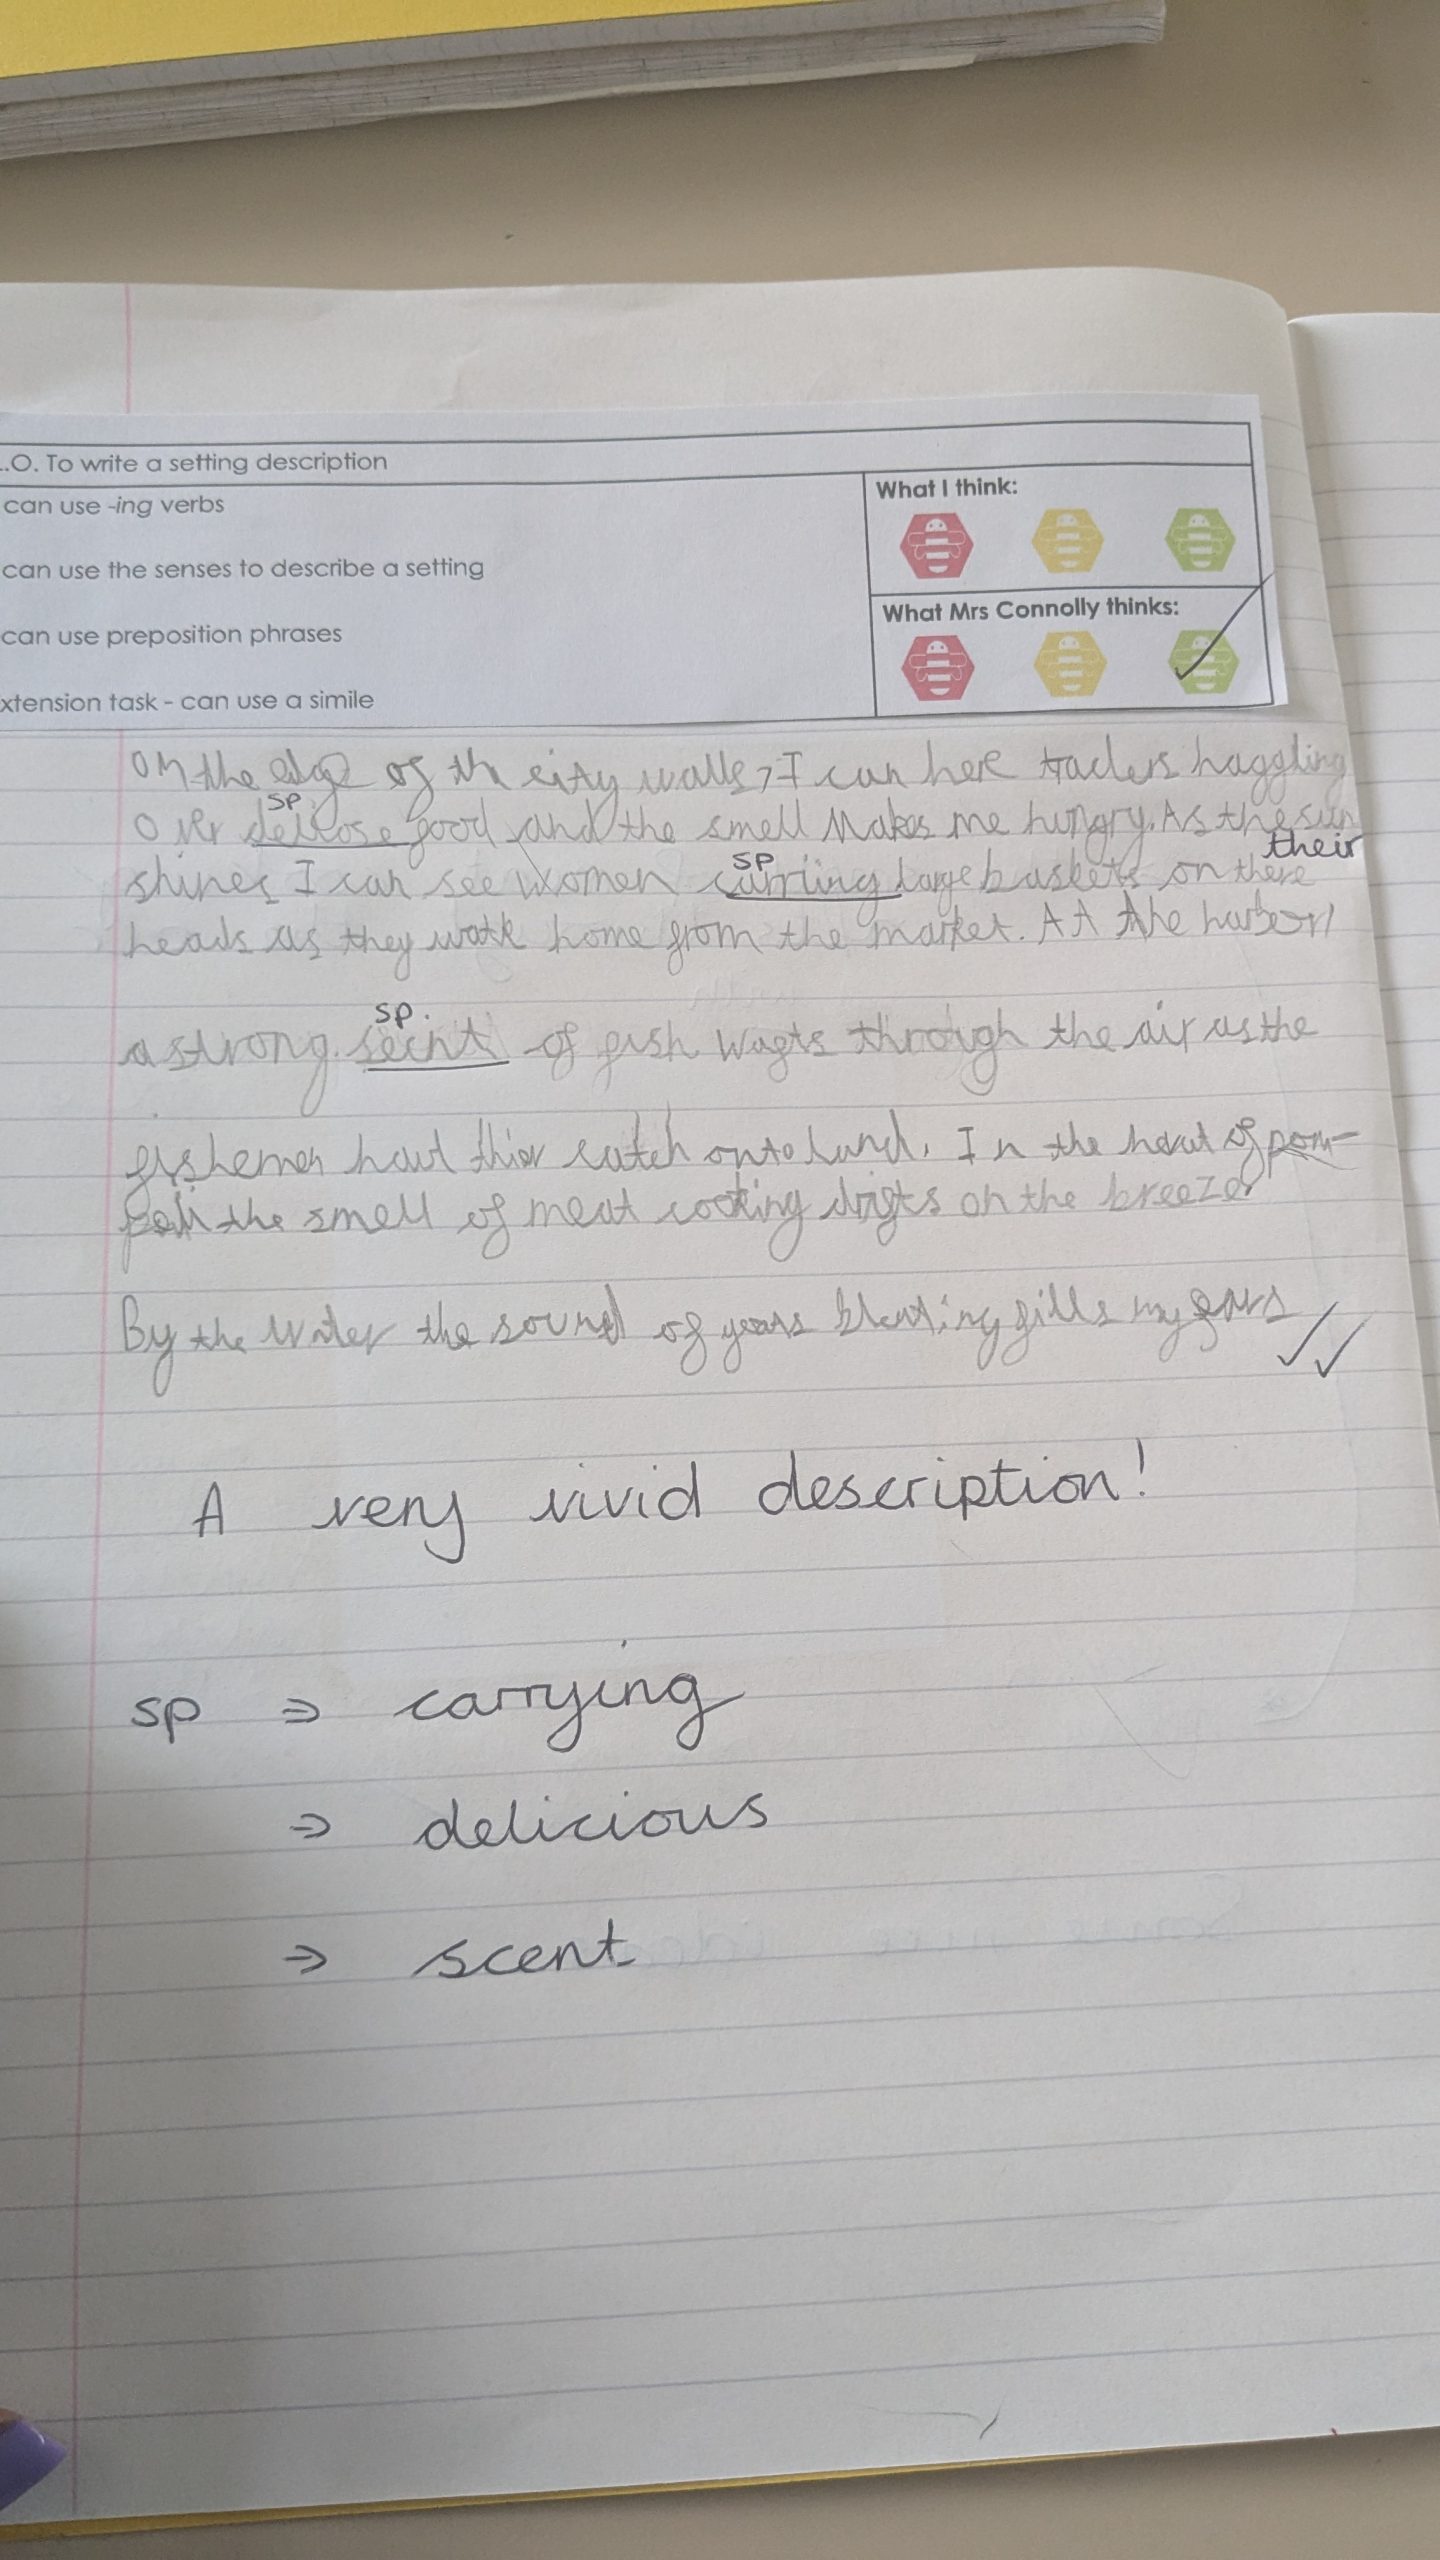 .O. To write a setting description
can use -ing verbs
can use the senses to describe a setting
can use preposition phrases
xtension task - can use a simile
What I think:
What Mrs Connolly thinks:
on the edge of th city walls, I can here traders haggling
sp.
over deliose food and the smell Makes me hungry. As the sun
sp their
shines I can see women carriing large baskets on there
heads as they walk home from the market. At the harbor
sp.
a strong secnt of fish wafts through the air as the
fishemen haul thier catch onto land. In the heart of pom-
peii the smell of meat cooking drifts on the breeze
By the water the sound of bleating fills my ears
A very vivid description!
sp ⇒ carrying
⇒ delicious
⇒ scent